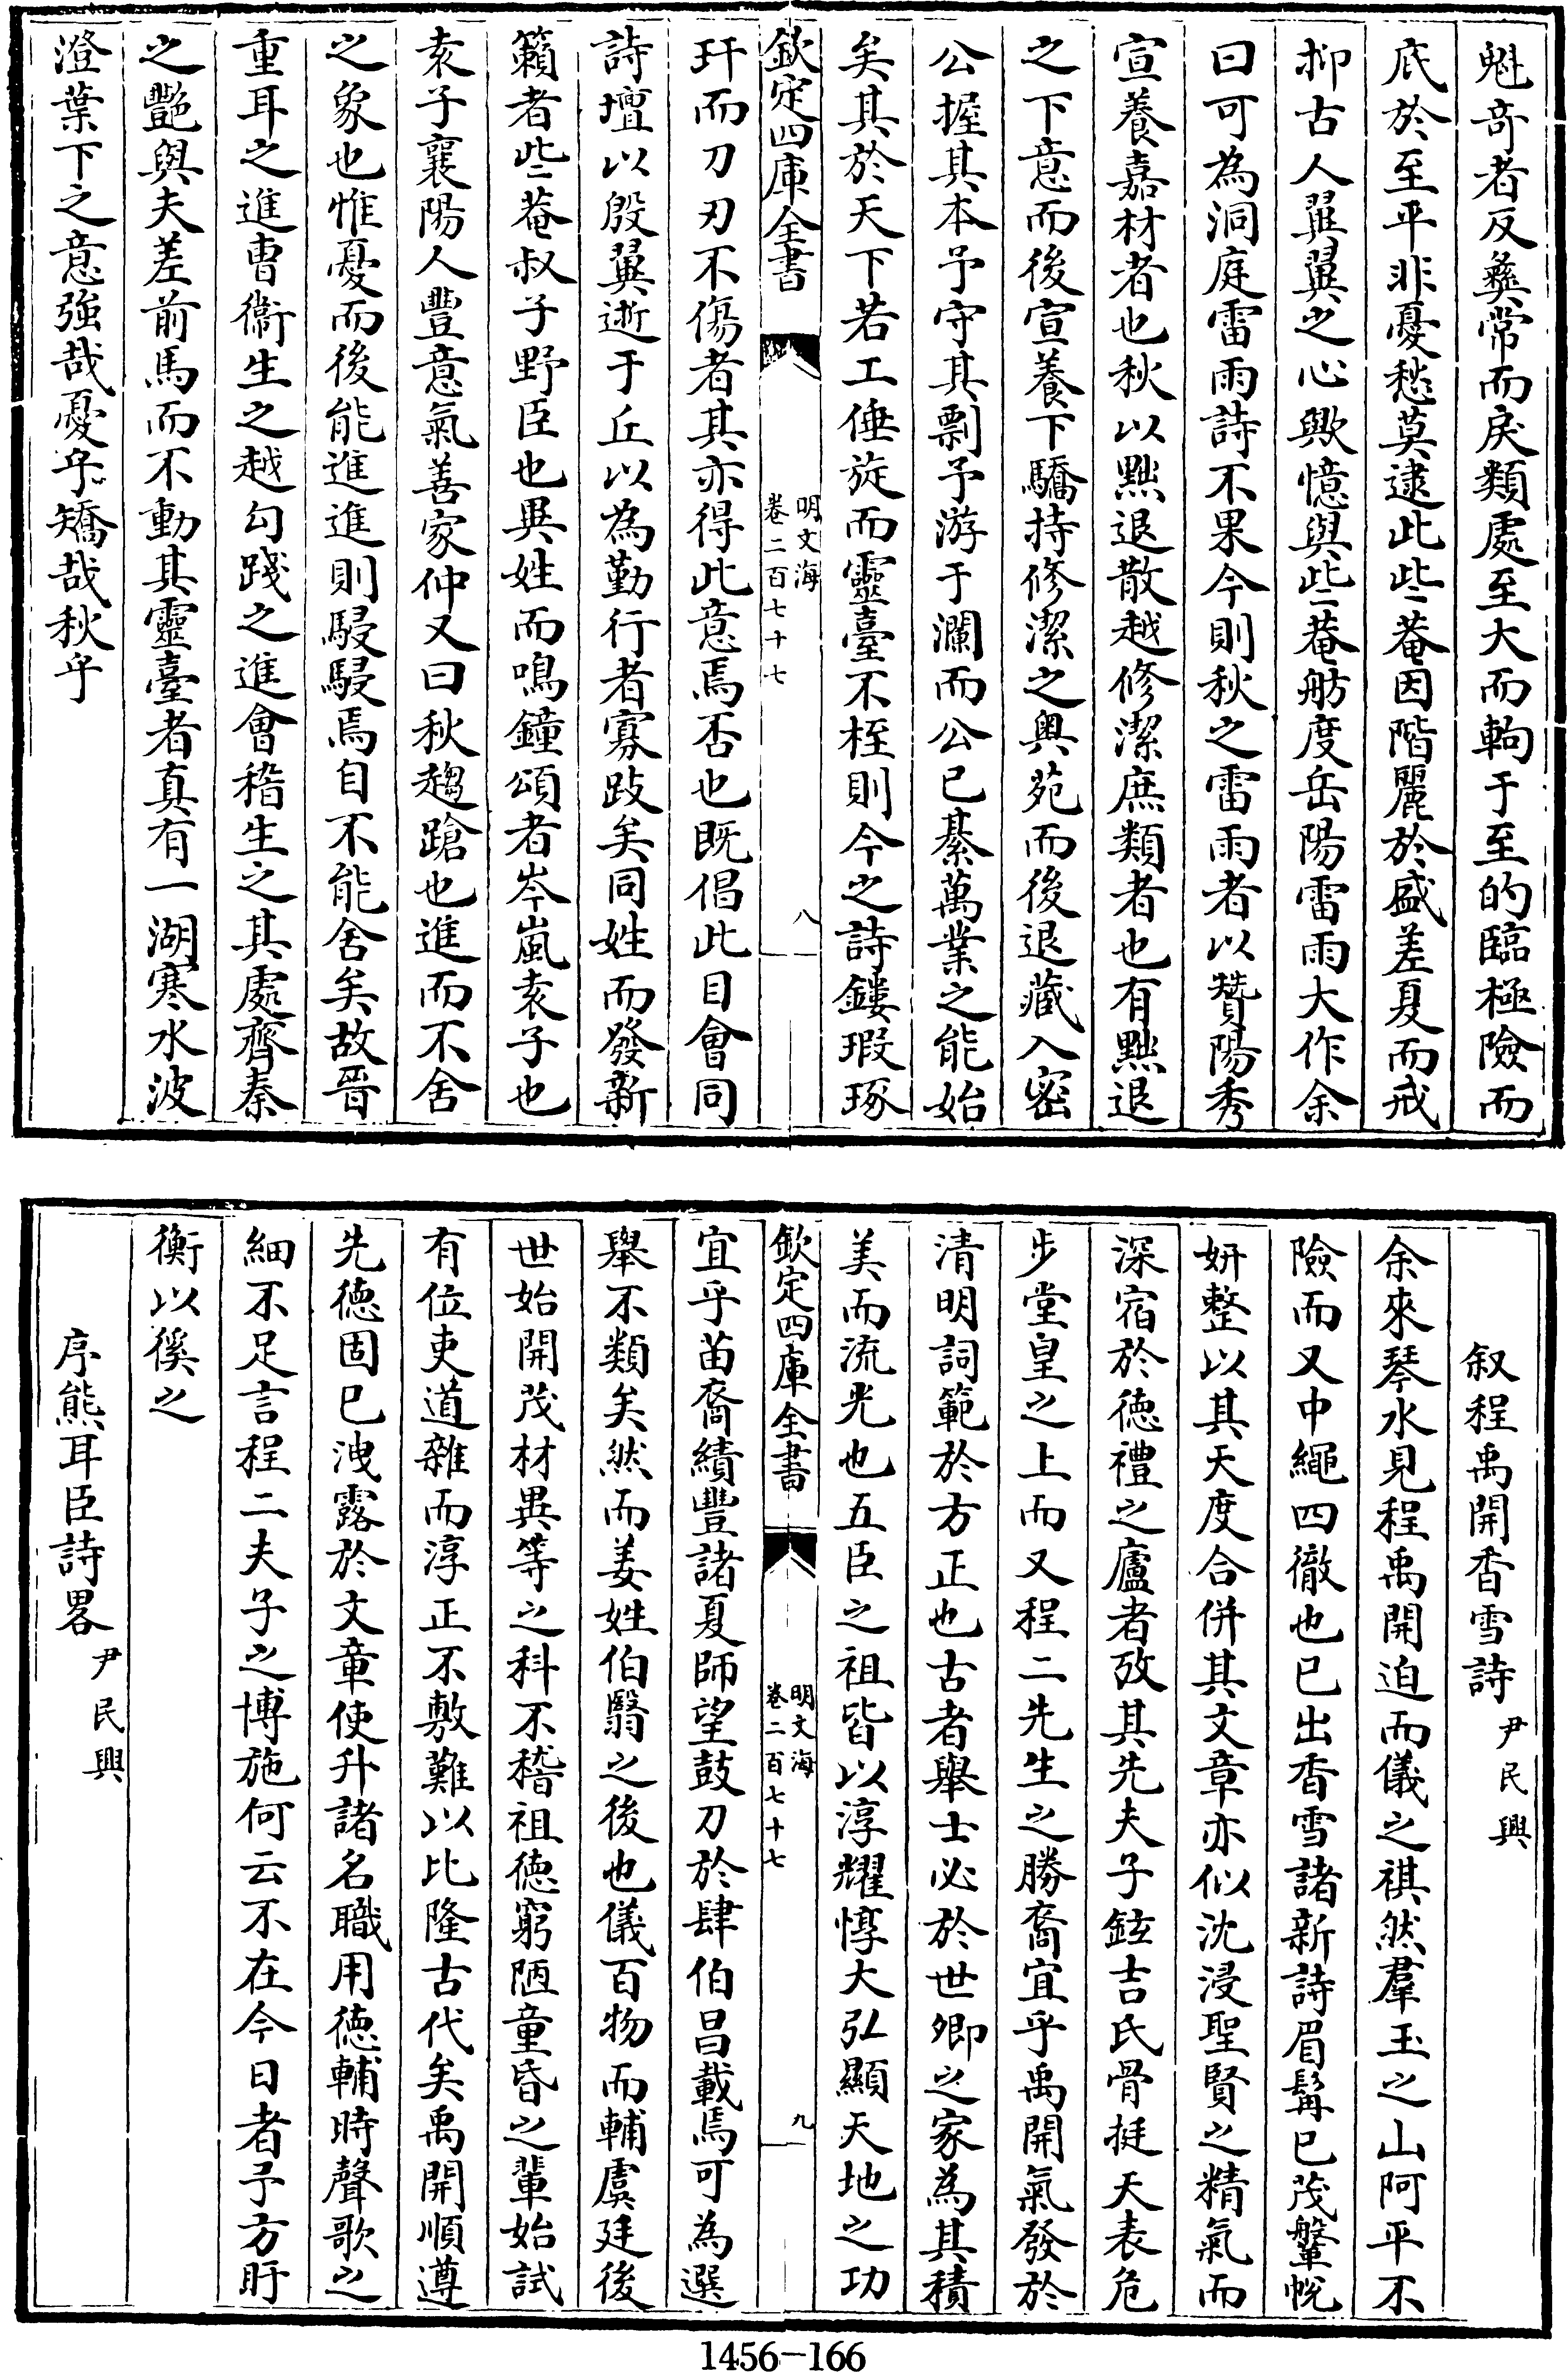 魁奇者反彝常而戾類處至大而軥于至的臨極險而
底於至平非憂愁莫逮此些菴因階麗於盛差夏而戒
抑古人巽翼之心歟憶與些菴舫度岳陽雷雨大作余
曰可為洞庭雷雨詩不果今則秋之雷雨者以贊陽秀
宣養嘉材者也秋以黜退散越修潔庶類者也有黜退
之下意而後宣養下驕持修潔之奥苑而後退藏入密
公握其本予守其剽予游于瀾而公已綦萬業之能始
矣其於天下若工倕旋而靈臺不桎則今之詩鏤瑕琢
欽定四庫全書
明文海
卷二百七十七
八
玕而刀刃不傷者其亦得此意焉否也既倡此目會同
詩壇以殷翼逝于丘以為勤行者寡跂矣同姓而發新
籟者些菴叔子野臣也異姓而鳴鐘頌者岑嵐袁子也
袁子襄陽人豐意氣善家仲又曰秋趨蹌也進而不舍
之象也惟憂而後能進進則駸駸焉自不能舍矣故晉
重耳之進曹衞生之越勾踐之進會稽生之其處齊秦
之艷與夫差前馬而不動其靈臺者真有一湖寒水波
澄葉下之意強哉憂乎矯哉秋乎
叙程禹開香雪詩 尹民興
余來琴水見程禹開迫而儀之祺然羣玉之山阿平不
險而又中繩四徹也已出香雪諸新詩眉髯已茂鞶帨
妍整以其天度合併其文章亦似沈浸聖賢之精氣而
深宿於德禮之廬者攷其先夫子鉉吉氏骨挺天表危
步堂皇之上而又程二先生之勝裔宜乎禹開氣發於
清明詞範於方正也古者舉士必於世卿之家為其積
美而流光也五臣之祖皆以淳耀惇大弘顯天地之功
欽定四庫全書
明文海
卷二百七十七
九
宜乎苗裔續豐諸夏師望鼓刀於肆伯昌載焉可為選
舉不類矣然而姜姓伯翳之後也儀百物而輔虞廷後
世始開茂材異等之科不稽祖德窮陋童昏之輩始試
有位吏道雜而淳正不敷難以比隆古代矣禹開順遵
先德固已洩露於文章使升諸名職用德輔時聲歌之
細不足言程二夫子之博施何云不在今日者予方盱
衡以徯之
序熊耳臣詩畧 尹民興
1456-166